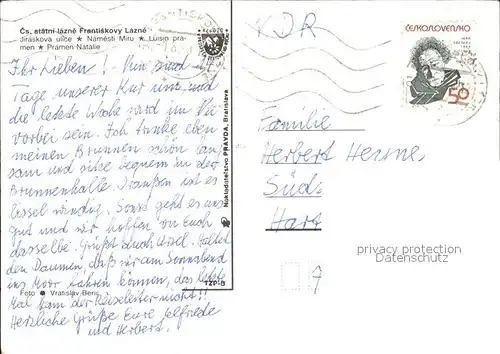 Čs. státní lázně Františkovy Lázně
Jiráskova ulice ★ Náměstí Míru ★ Luisin pra-
men ★ Pramen Natálie
Ihr Lieben! Nun sind
Tage unserer Kur um und
die letzte Woche wird im Nu
vorbei sein. Ich trinke eben
meinen Brunnen schön lang
sam und sitze bequem in der
Brunnenhalle. Draußen ist es
bissel windig. Sonst geht es uns
gut und wir hoffen von Euch
dasselbe. Grüßt auch Usel. Haltet
den Daumen, daß wir am Sonnabend
ins Moor fahren können, das letzte
Mal kam der Reiseleiter nicht!!
Herzliche Grüße Eure Elfriede
und Herbert.
Foto ● Vratislav Benc
TZP-B
Nakladatelstvo PRAVDA, Bratislava
KDR
ČESKOSLOVENSKO
50
Familie
Herbert
Süd-
Hart
privacy protection
Datenschutz